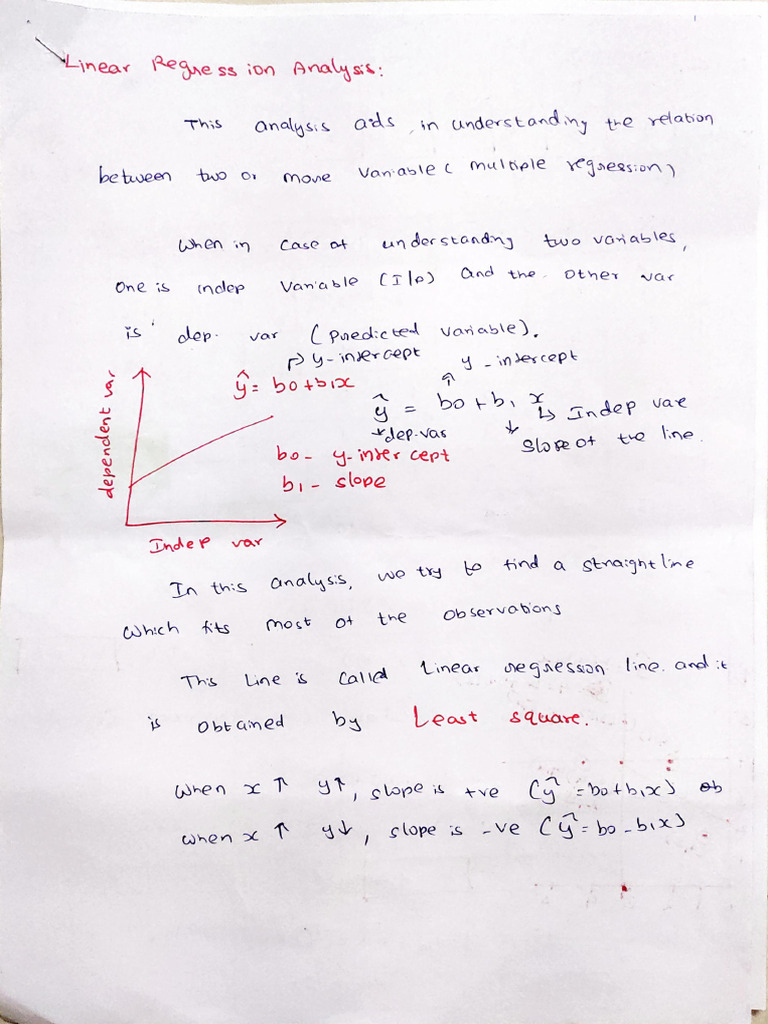 Linear Regression Analysis:
This analysis aids in understanding the relation
between two or more Variable ( multiple regression)
When in case of understanding two variables,
One is indep Variable (I/P) and the other var
is dep. var (predicted variable).
y-intercept
y - intercept
ŷ = b0+b1x
ŷ = b0+b1 x
Indep var
dep.var
Slope of the line.
b0 - y-intercept
b1 - slope
dependent var
Indep var
In this analysis, we try to find a straight line
which fits most of the observations
This Line is called Linear regression line and it
is obtained by Least square.
When x ↑ y↑, slope is +ve (ŷ = b0+b1x)
when x ↑ y↓, slope is -ve (ŷ = b0 - b1x)